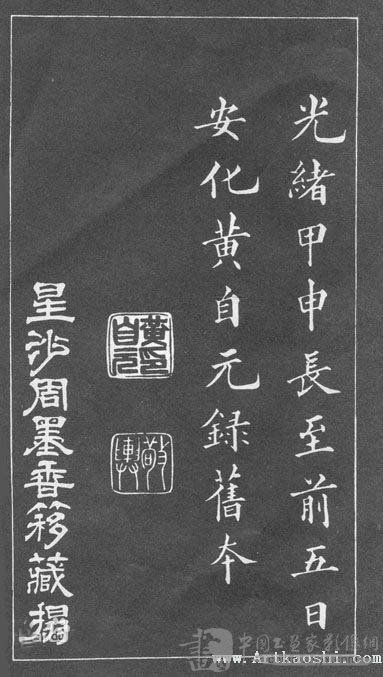 光緒甲申長至前五日
安化黄自元錄舊本
黄印自元
敬輿
星沙周墨香簃藏搨
www.Artkaoshi.com